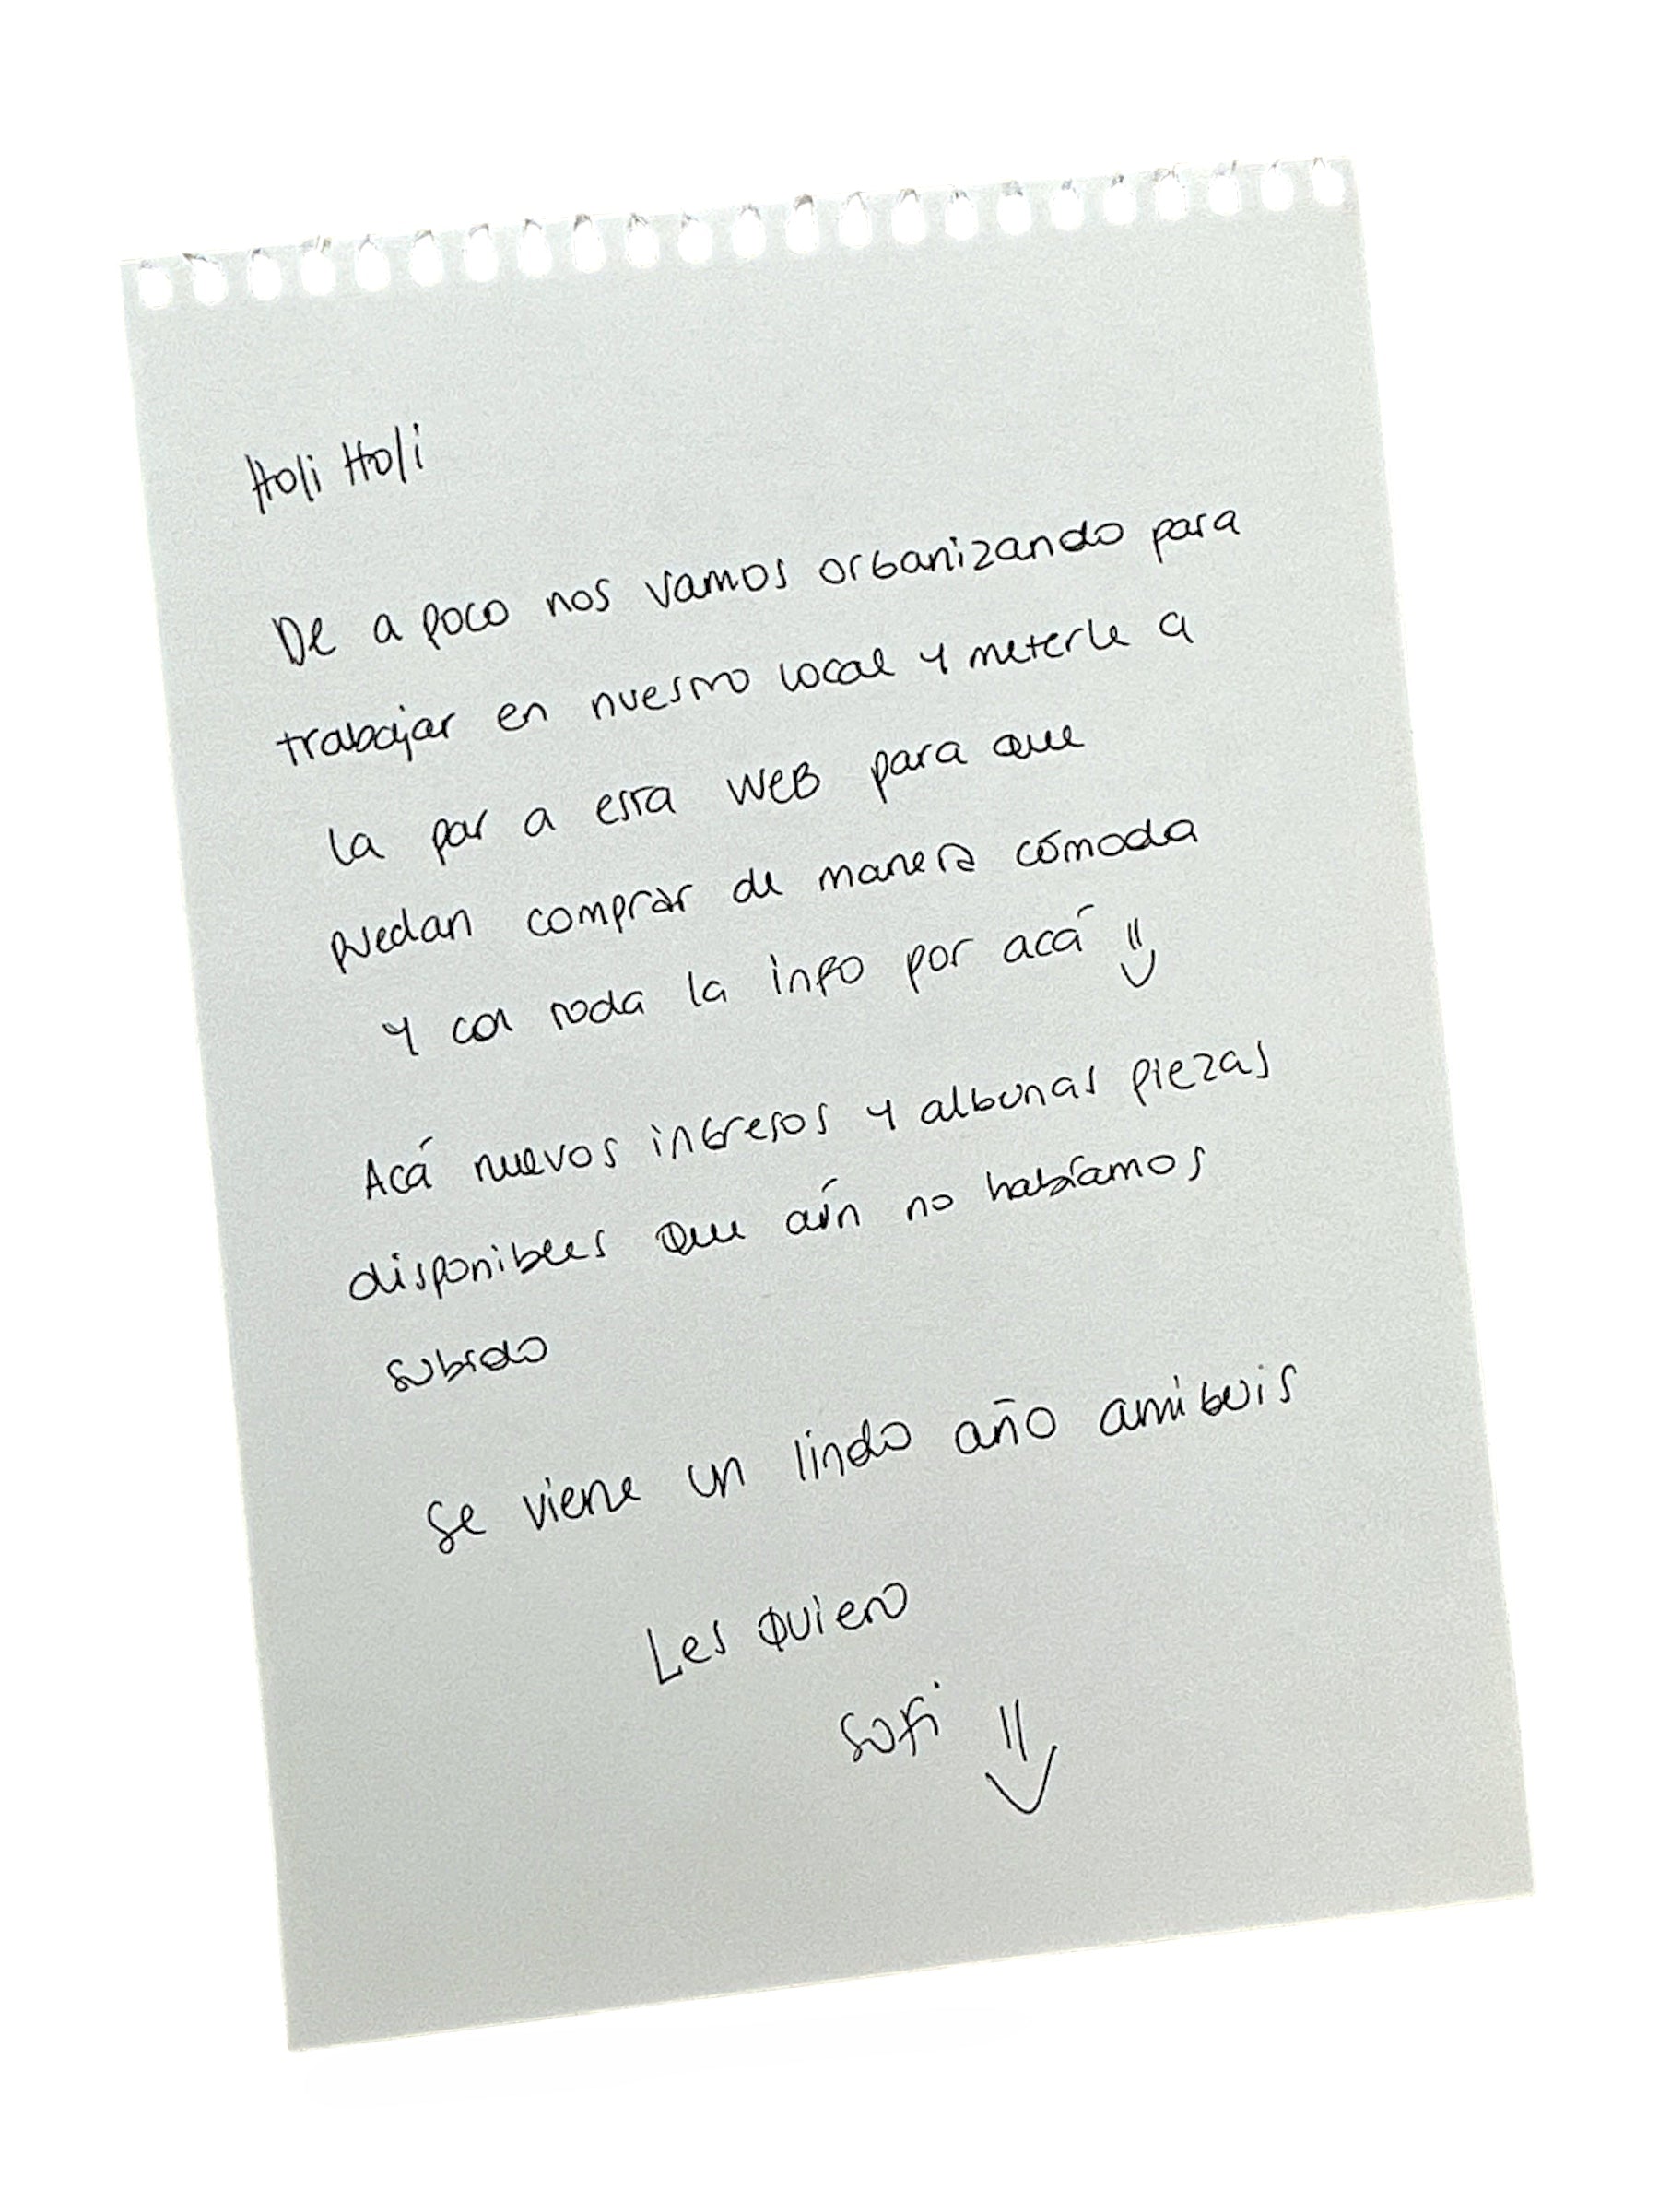 Holi Holi
De a poco nos vamos organizando para
trabajar en nuestro local y meterle a
la par a esta web para que
puedan comprar de manera cómoda
y con toda la info por acá
Acá nuevos ingresos y algunas piezas
disponibles que aún no habíamos
subido
Se viene un lindo año amiguis
Les quiero
Sofi